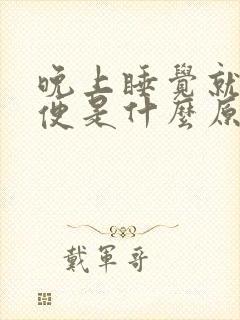 晚上睡覺就
便是什麼原
戴軍哥